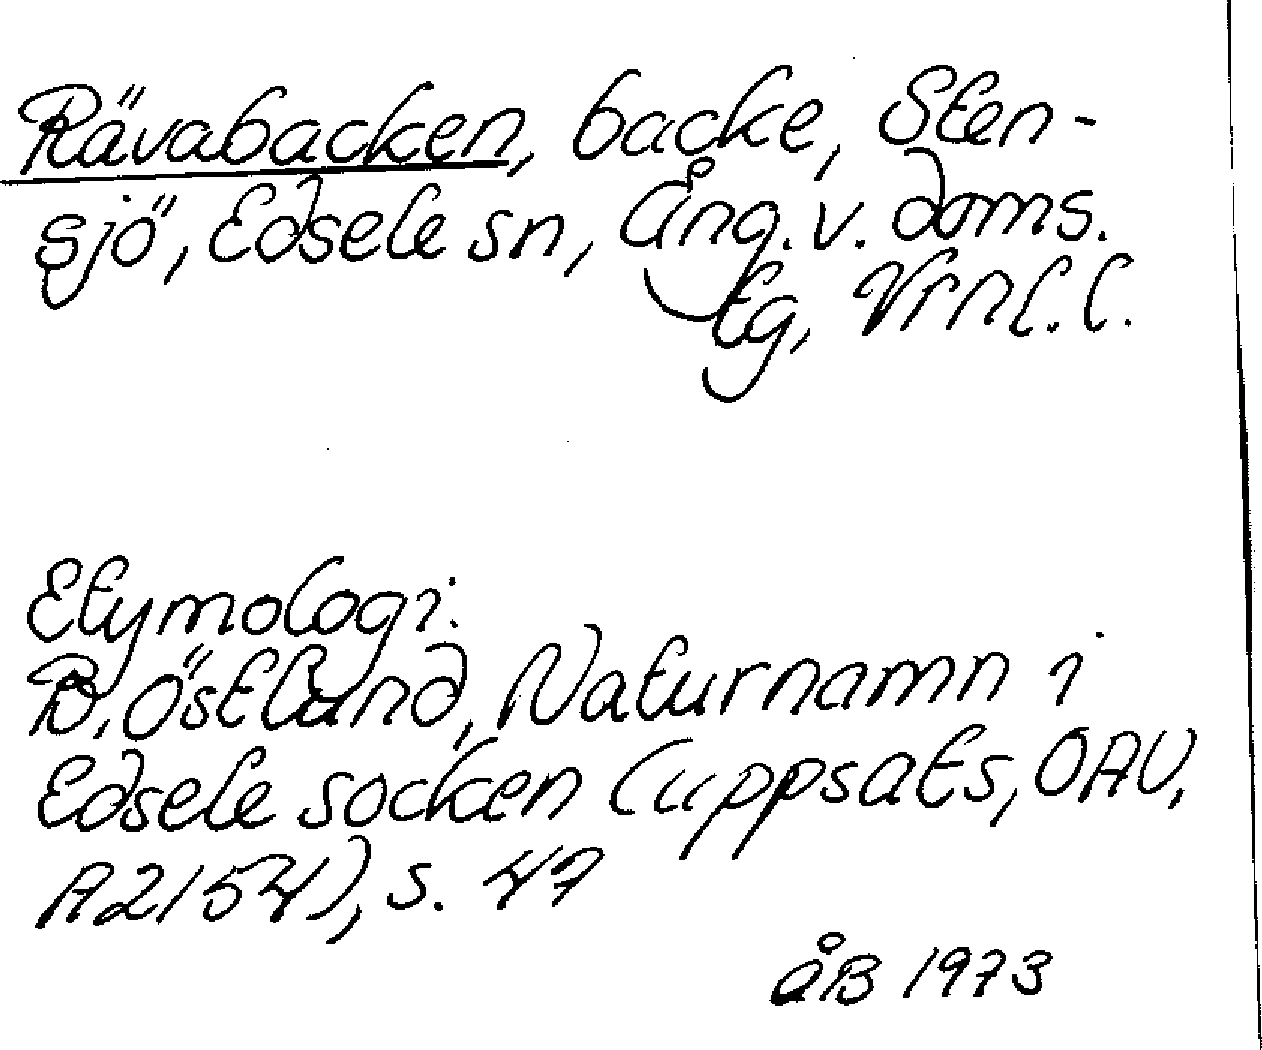 Rävabacken, backe, Sten-
sjö, Edsele sn, Ång. v. doms.
tg, Vrnl. l.
Etymologi.
B. Östlund, Naturnamn i
Edsele socken (uppsats, OAU,
A2154), s. 47
åB 1973